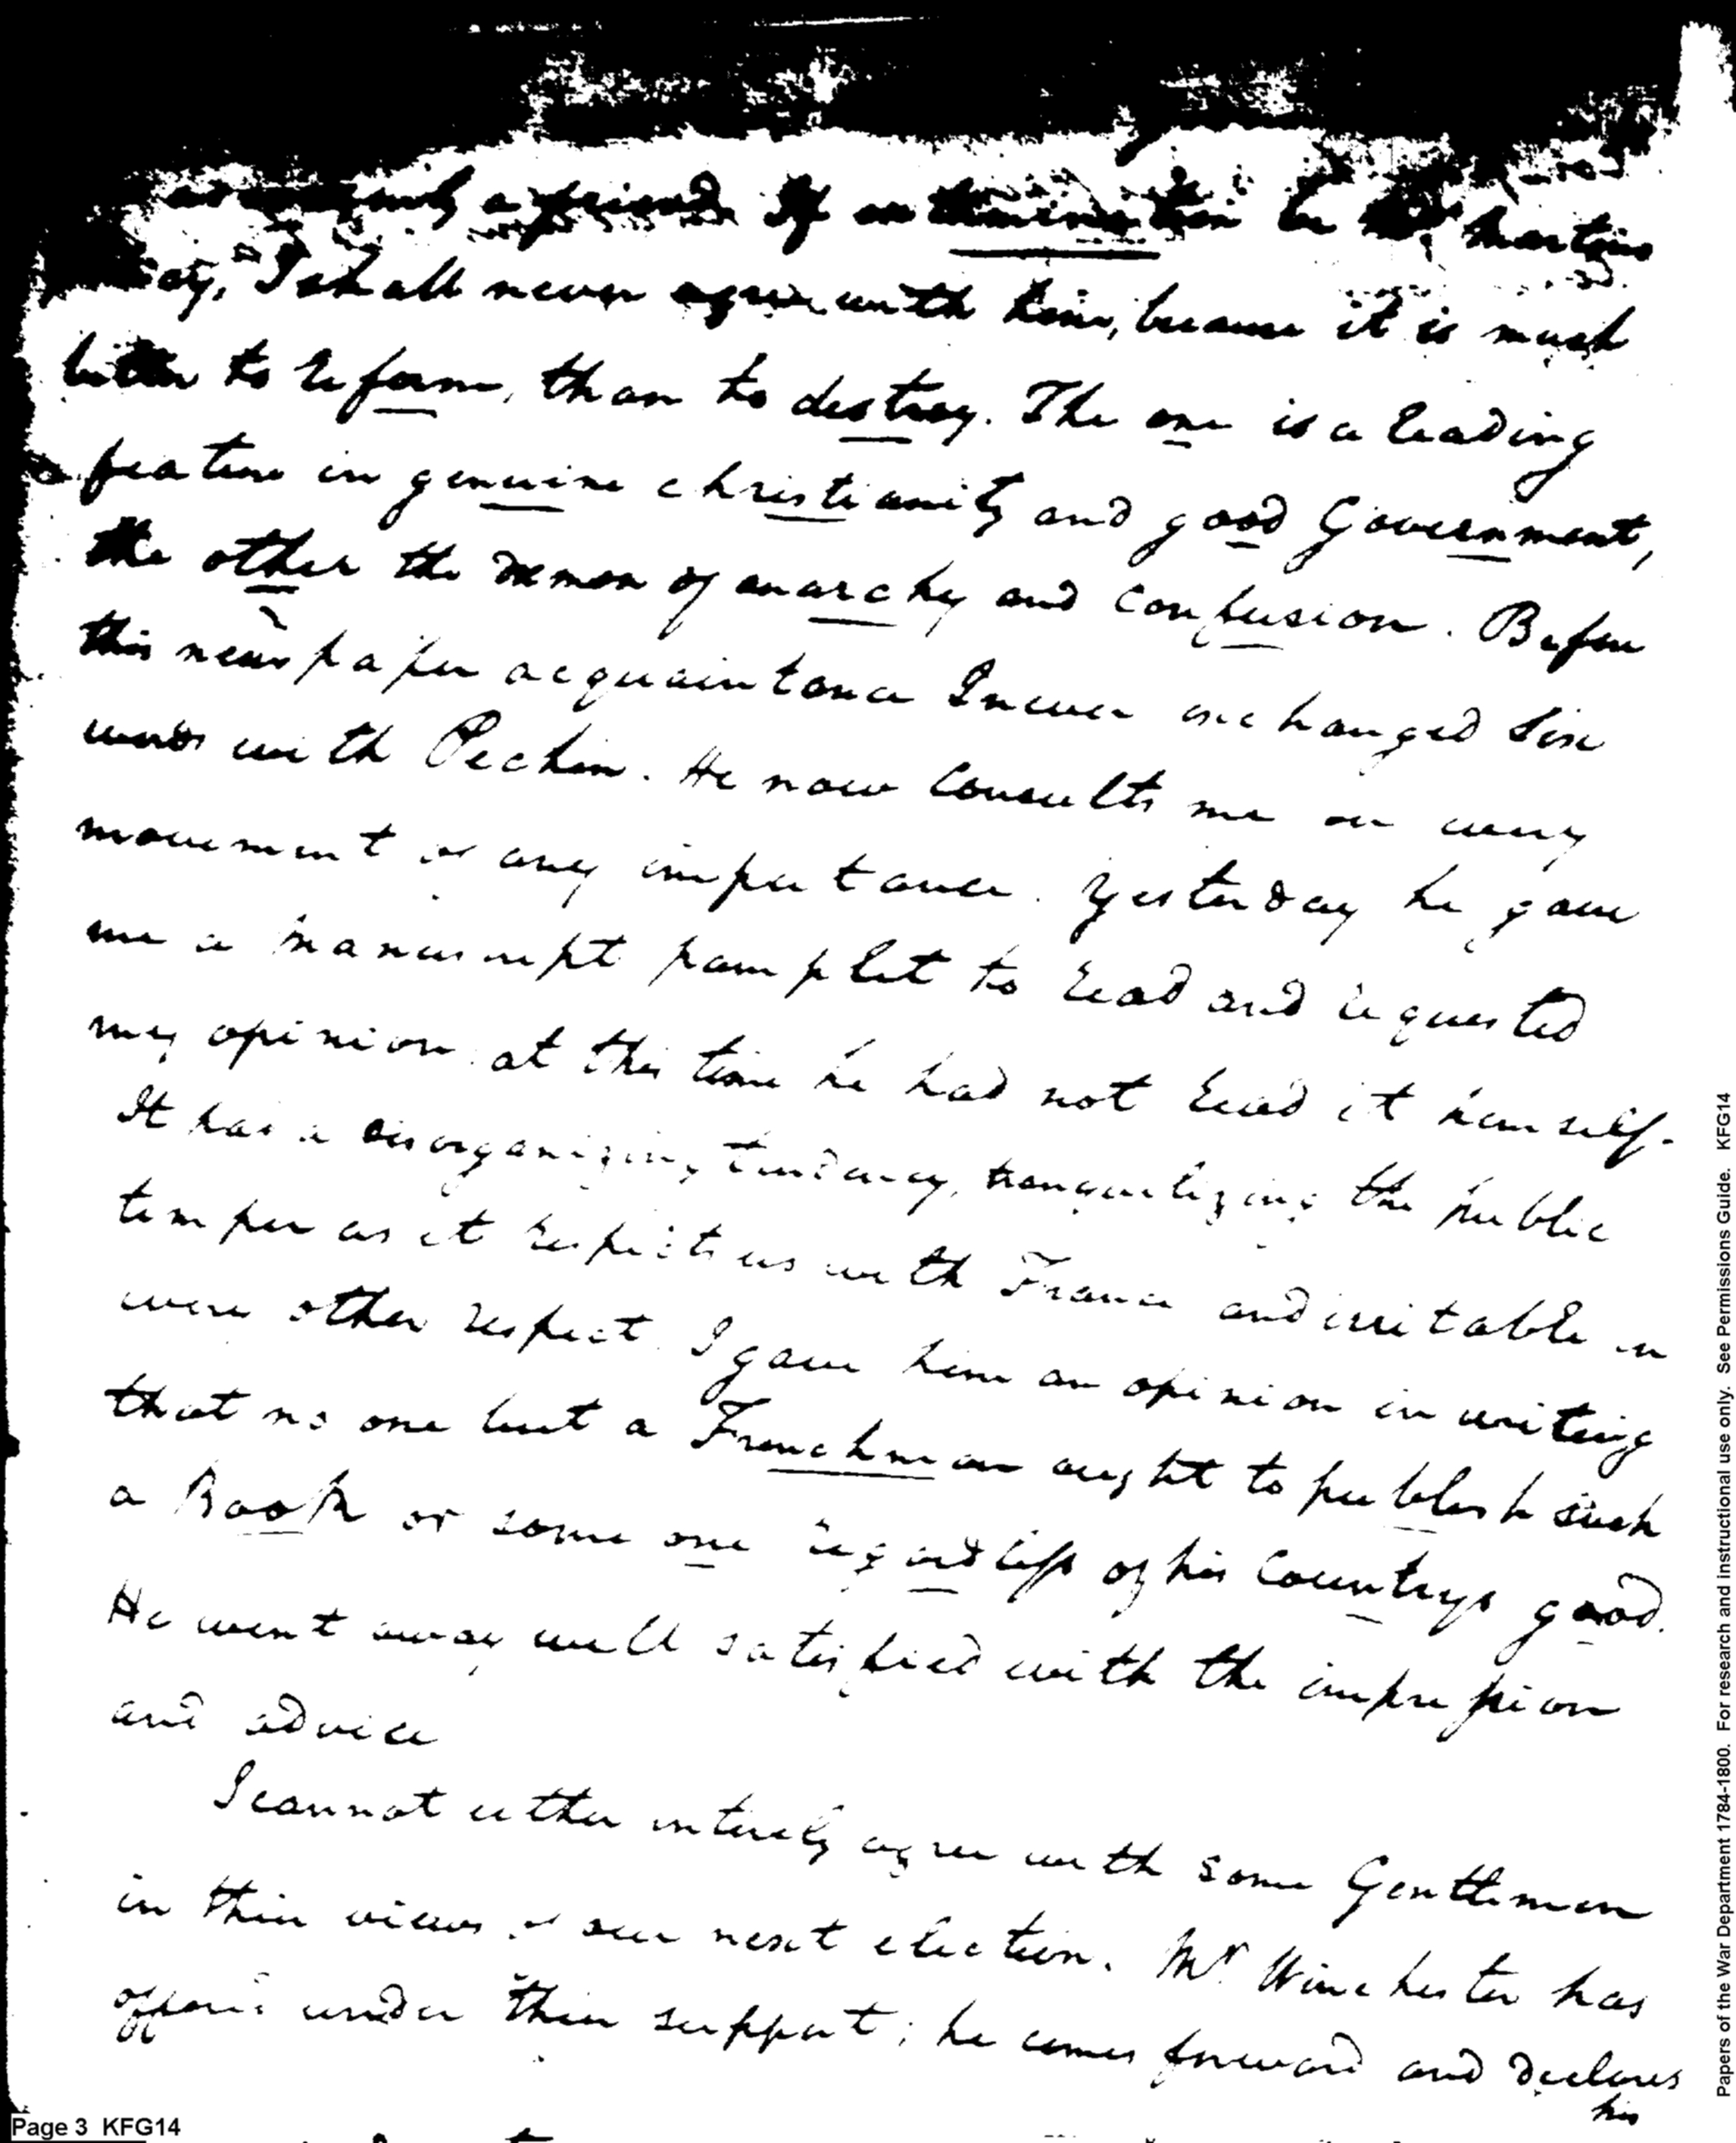 a friend If extermination be Mr. Martins
I shall never agree with him, because it is much
better to reform, than to destroy. The one is a leading
feature in genuine christianity and good Government,
the other the demon of anarchy and Confusion. Before
this newspaper acquaintance I never exchanged Six
words with Pechin. He now Consults me on every
movement of any importance. Yesterday he gave
me a manuscript pamplet to read and requested
my opinion at this time he had not read it himself.
It has a disorganizing tendency, tranquilizing the public
temper as it respects us with France and irritable in
every other respect. I gave him an opinion in writing
that no one but a Frenchman ought to publish such
a Book or some one regardless of his Countrys good.
He went away well satisfied with the impression
and advice
I cannot either intirely agree with some Gentlemen
in their views of our next election. Mr. Winchester has
under their support; he comes forward and declares
his
Page 3 KFG14
Papers of the War Department 1784-1800. For research and instructional use only. See Permissions Guide. KFG14